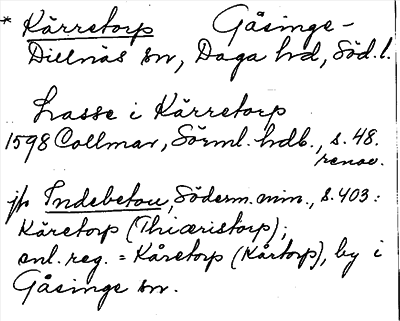 * Kärretorp Gåsinge-
Dillnäs sn, Daga hd, Söd.l.
Lasse i Kärretorp
1598 Collmar, Sörml. hdb., s. 48.
renov.
jfr Indebetou, Söderm. min., s. 403:
Käretorp (Thiæristorp);
enl. reg. = Kåretorp (Kårtorp), by i
Gåsinge sn.